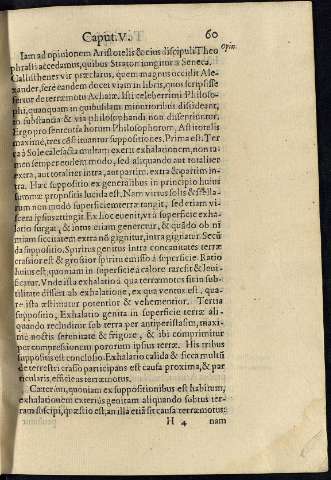 Caput. V. 60
Iam ad opinionem Aristotelis & eius discipuli Theo
Opin.
phrasti accedamus, quibus Straton iungitur à Seneca.
Callisthenes vir præclarus, quem magnus occidit Ale-
xander, fere eandem docet viam in libris, quos scripsisse
fertur de terræmotu Achaiæ. Isti celeberrimi Philoso-
phi, quamquam in quibusdam minutioribus dissideant,
in substantia & via philosophandi non dissentiuntur.
Ergo pro sententia horum Philosophorum, Aristotelis
maxime, tres cōstituantur suppositiones. Prima est. Ter
ra à Sole calefacta multam exerit exhalationem, non ta-
men semper eodem modo, sed aliquando aut totaliter
extra, aut totaliter intra, aut partim extra & partim in-
tra. Hæc suppositio ex generalibus in principio huius
summæ propositis lucida est. Nam virtus solis & stella-
rum non modò superficiem terræ tangit, sed etiam vi-
scera ipsius attingit. Ex hoc evenit, vt à superficie exha-
latio surgat, & intus etiam generetur, & quādo ob ni
miam siccitatem extra nō gignitur, intra gigiatur. Secū
da suppositio. Spiritus genitus intra concauitates terræ
crassior est & grossior spiritu emisso à superficie. Ratio
huius est; quoniam in superficie à calore rarefit & leui-
ficatur. Vnde ista exhalatio qua terræmotus fit in sub-
tilitate differt ab exhalatione, ex qua ventus est. quare
iste ista æstimatur potentior & vehementior. Tertia
suppositio, Exhalatio genita in superficie terræ ali-
quando recluditur sub terra per antiperistasim, maxi-
mè noctis serenitate & frigore, & ibi comprimitur
per compressionem pororum ipsius terræ. His tribus
suppositis est conclusio. Exhalatio calida & sicca multū
de terrestri crasso participans est causa proxima, & par
ticularis, efficiens terræmotus.
Cæterùm, quoniam ex suppositionibus est habitum,
exhalationem exteriùs genitam aliquando subtus ter-
ram suscipi, quæstio est, an illa etiā sit causa terræmotus:
H 4 nam